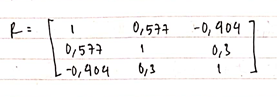 R = [ 1 0,577 -0,904
0,577 1 0,3
-0,904 0,3 1 ]